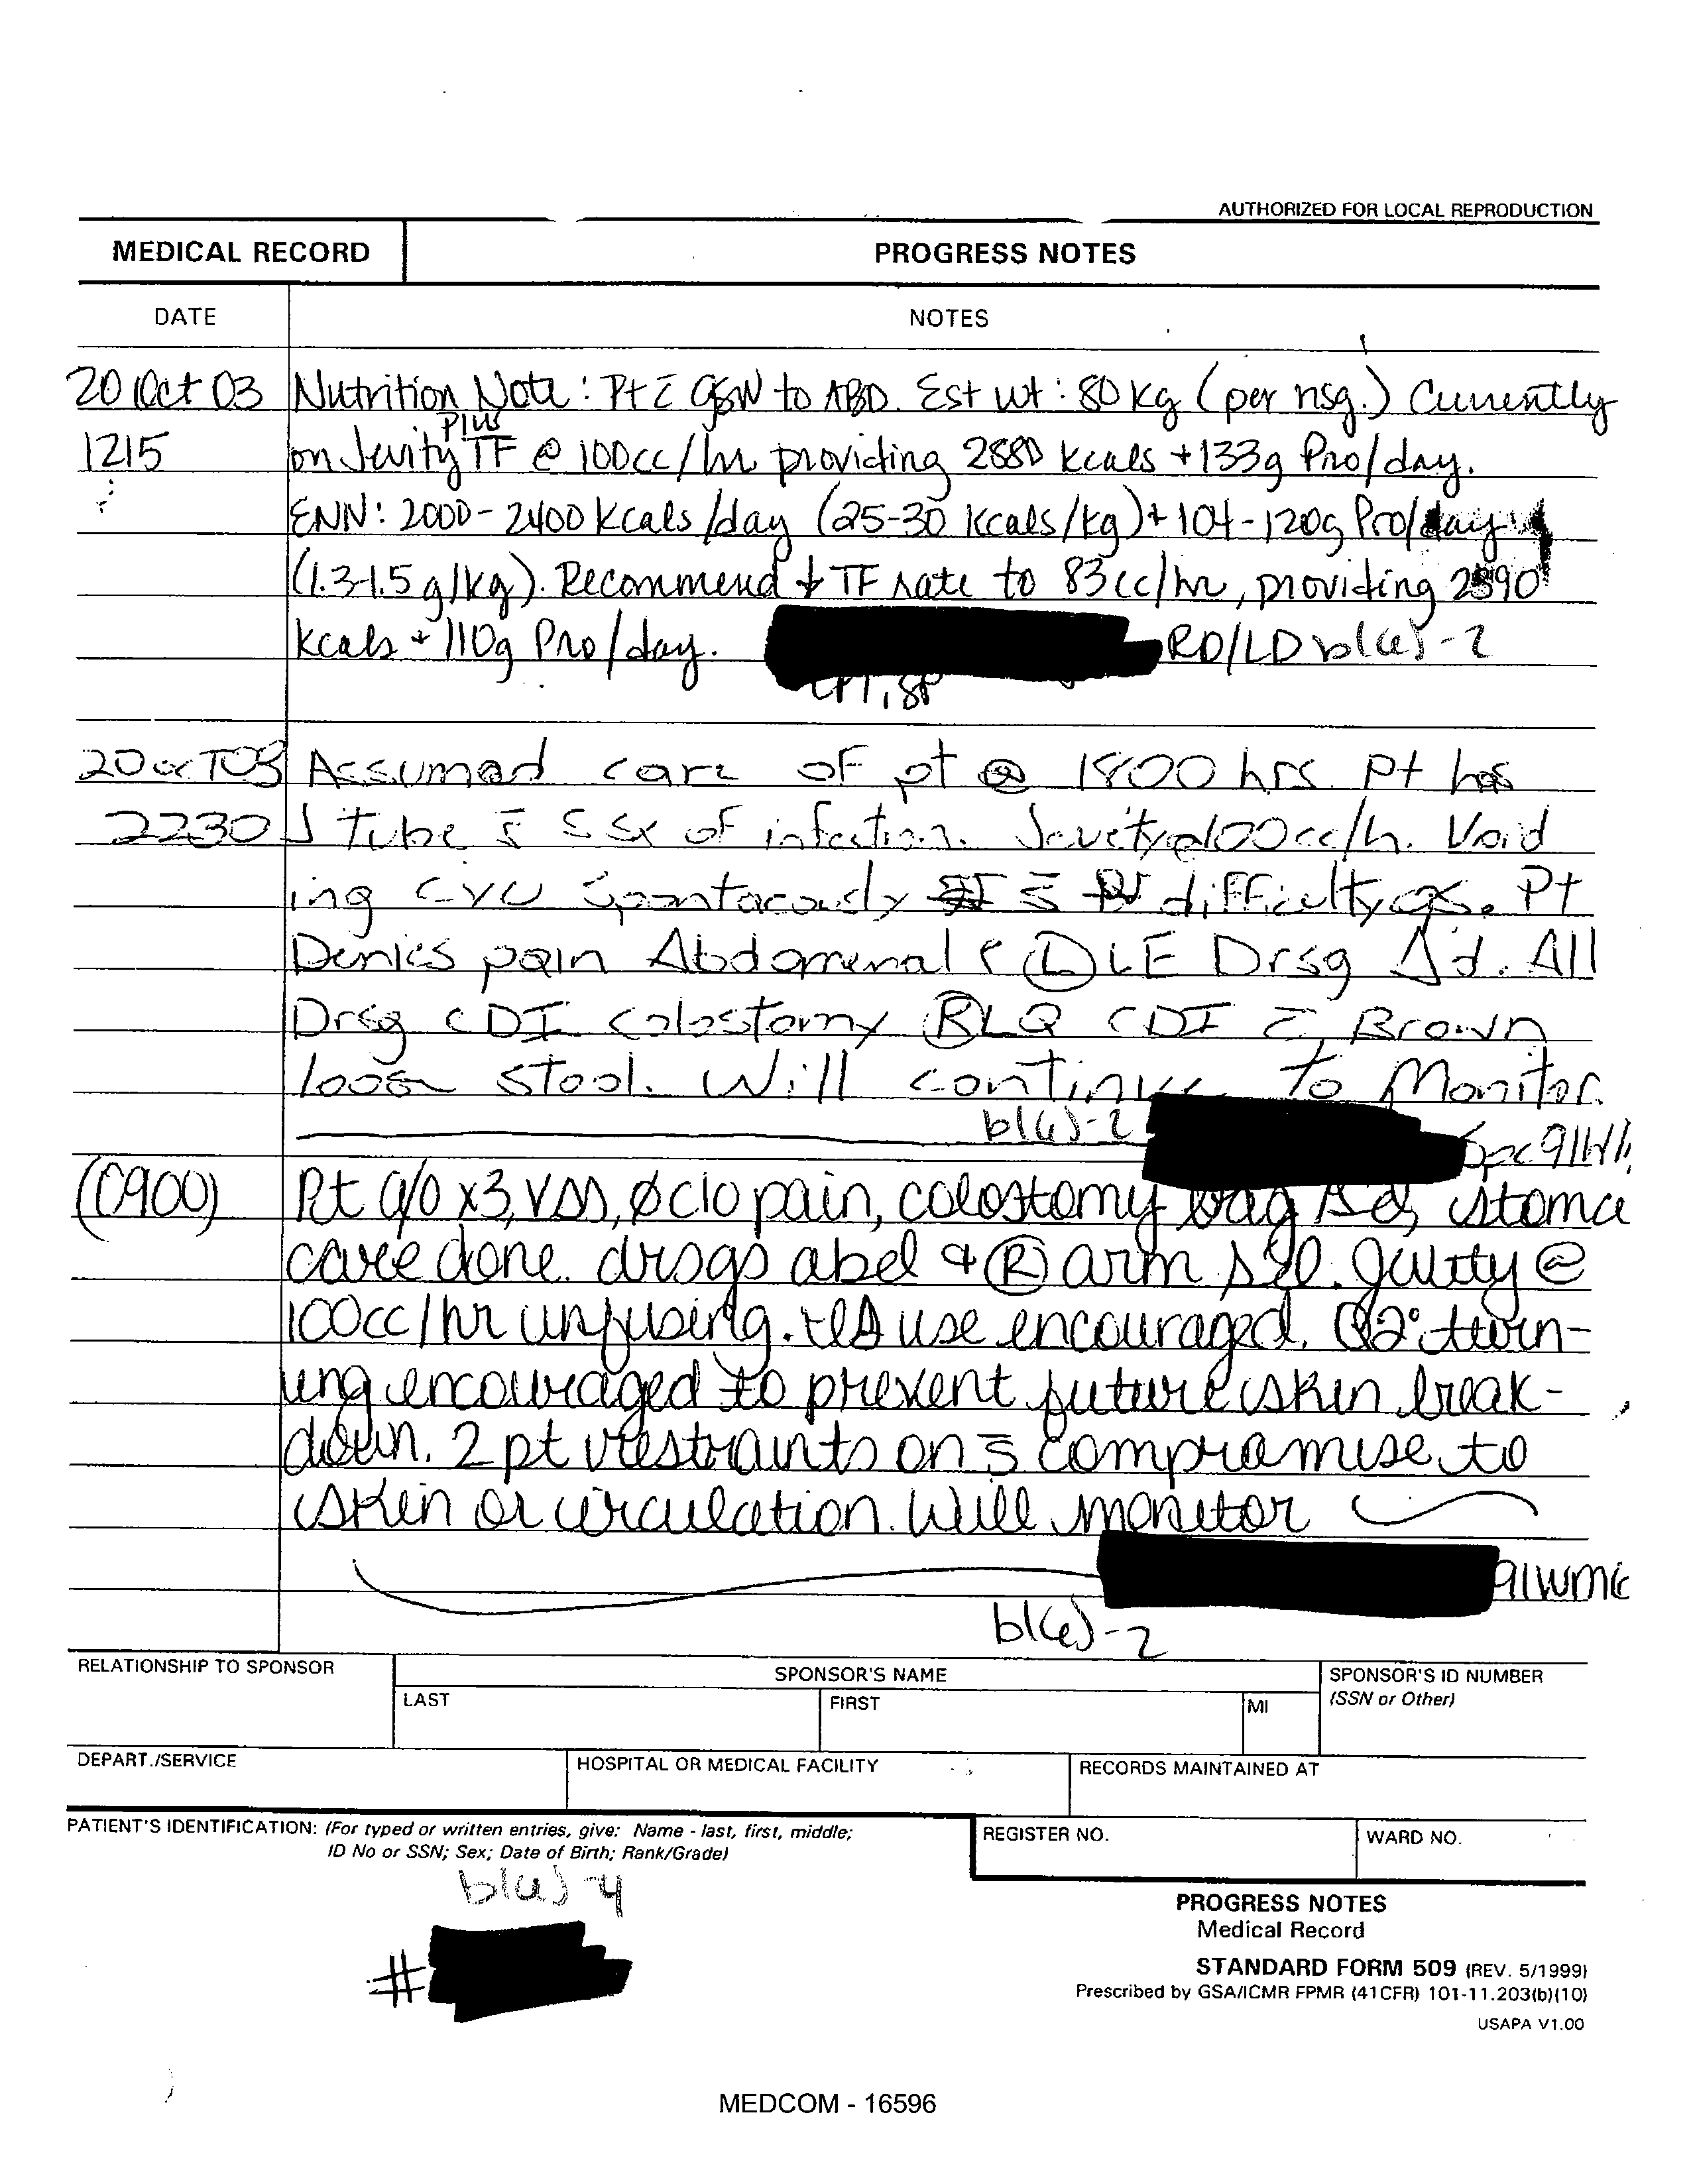 AUTHORIZED FOR LOCAL REPRODUCTION
MEDICAL RECORD PROGRESS NOTES
DATE NOTES
20 Oct 03 Nutrition Note: Pt c̄ GSW to ABD. Est wt: 80 kg (per nsg.) Currently
1215 on Jevity Plus TF @ 100cc/hr providing 2880 kcals + 133g Pro/day.
ENN: 2000-2400 kcals/day (25-30 kcals/kg) + 104-120g Pro/day
(1.3-1.5 g/kg). Recommend ↓ TF rate to 83cc/hr, providing 2390
kcals + 110g Pro/day. RD/LD b(6)-2
CPT, SP
20 OCT 03 Assumed care of pt @ 1800 hrs. Pt has
2230 J Tube s̄ S Sx of infection. Jevity @ 100cc/h. Void
ing CYU Spontaeously s̄ difficulty. Pt
Denies pain Abdomenal & Ⓛ LE Drsg Δd. All
Drsg CDI Colostomy Ⓡ LQ CDI c̄ Brown
loose stool. Will continue to Monitor.
b(6)-2 Spc 91W
(0900) Pt a/o x3, VSS, Ø c/o pain, colostomy bag Δ'd, stoma
care done. drsgs abd & Ⓡ arm Δ'd. Jevity @
100cc/hr infusing. IS use encouraged. Q2° turn-
ing encouraged to prevent future skin break-
down. 2 pt restraints on s̄ compromise to
skin or circulation. Will monitor
91WM6
b(6)-2
RELATIONSHIP TO SPONSOR SPONSOR'S NAME SPONSOR'S ID NUMBER
LAST FIRST MI (SSN or Other)
DEPART./SERVICE HOSPITAL OR MEDICAL FACILITY RECORDS MAINTAINED AT
PATIENT'S IDENTIFICATION: (For typed or written entries, give: Name - last, first, middle; REGISTER NO. WARD NO.
ID No or SSN; Sex; Date of Birth; Rank/Grade)
b(6)-4
#
PROGRESS NOTES
Medical Record
STANDARD FORM 509 (REV. 5/1999)
Prescribed by GSA/ICMR FPMR (41CFR) 101-11.203(b)(10)
USAPA V1.00
MEDCOM - 16596